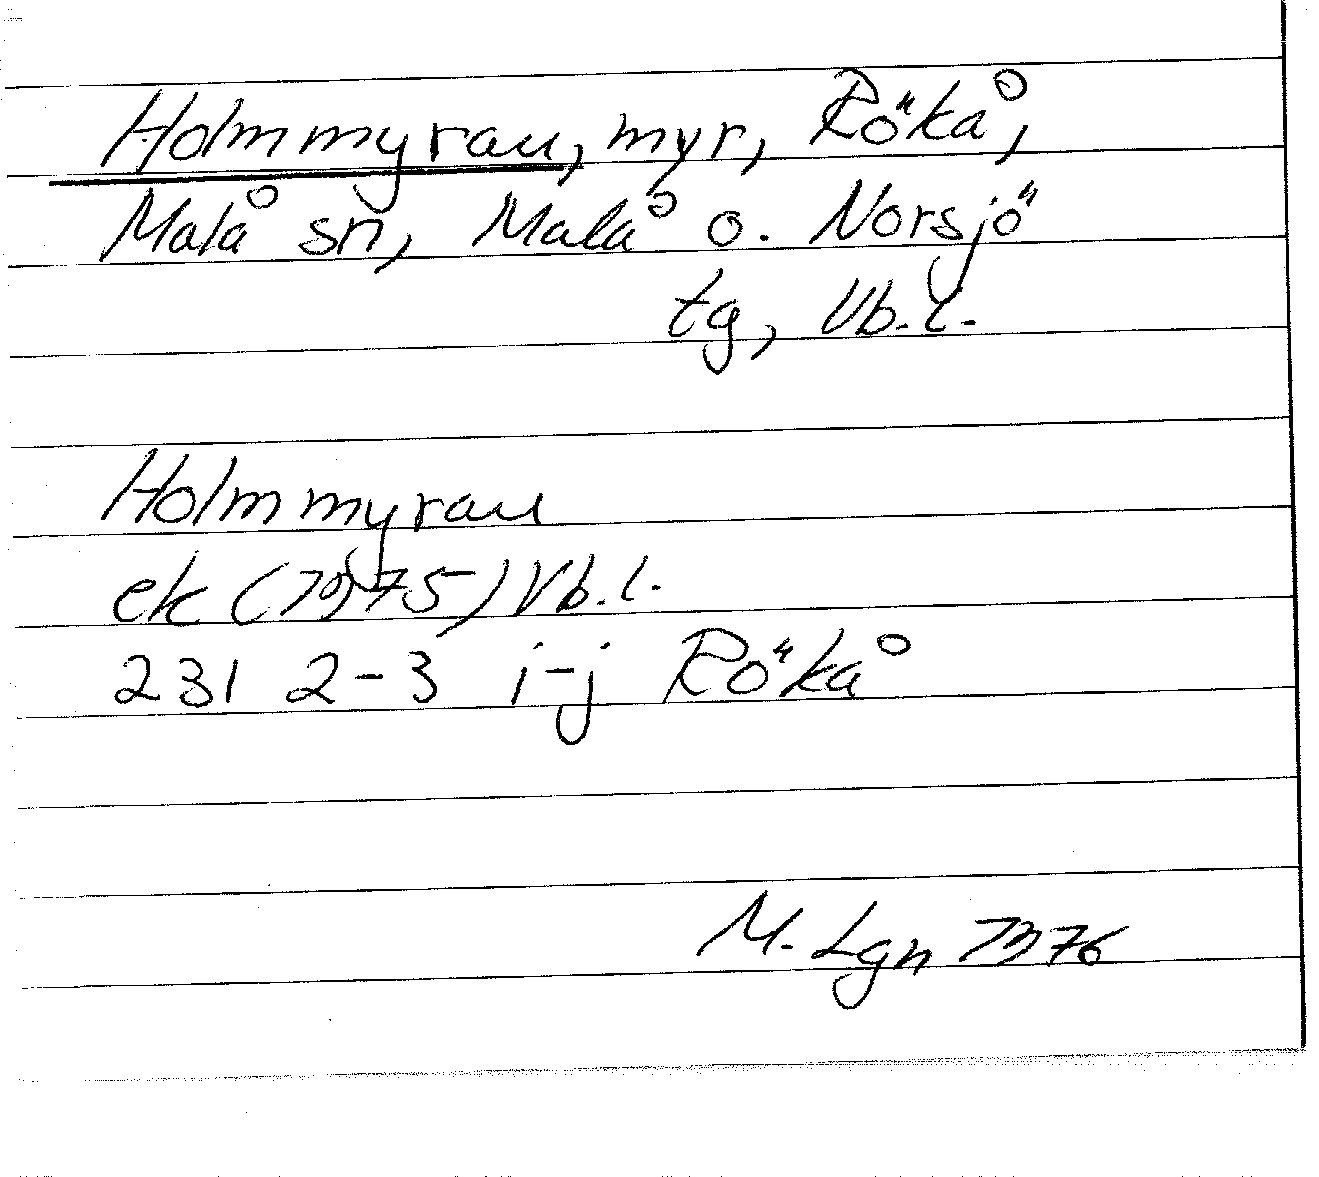 Holmmyran, myr, Rökå,
Malå sn, Malå o. Norsjö
tg, Vb.l.
Holmmyran
ek (1975) Vb.l.
231 2-3 i-j Rökå
M. Lgn 1976